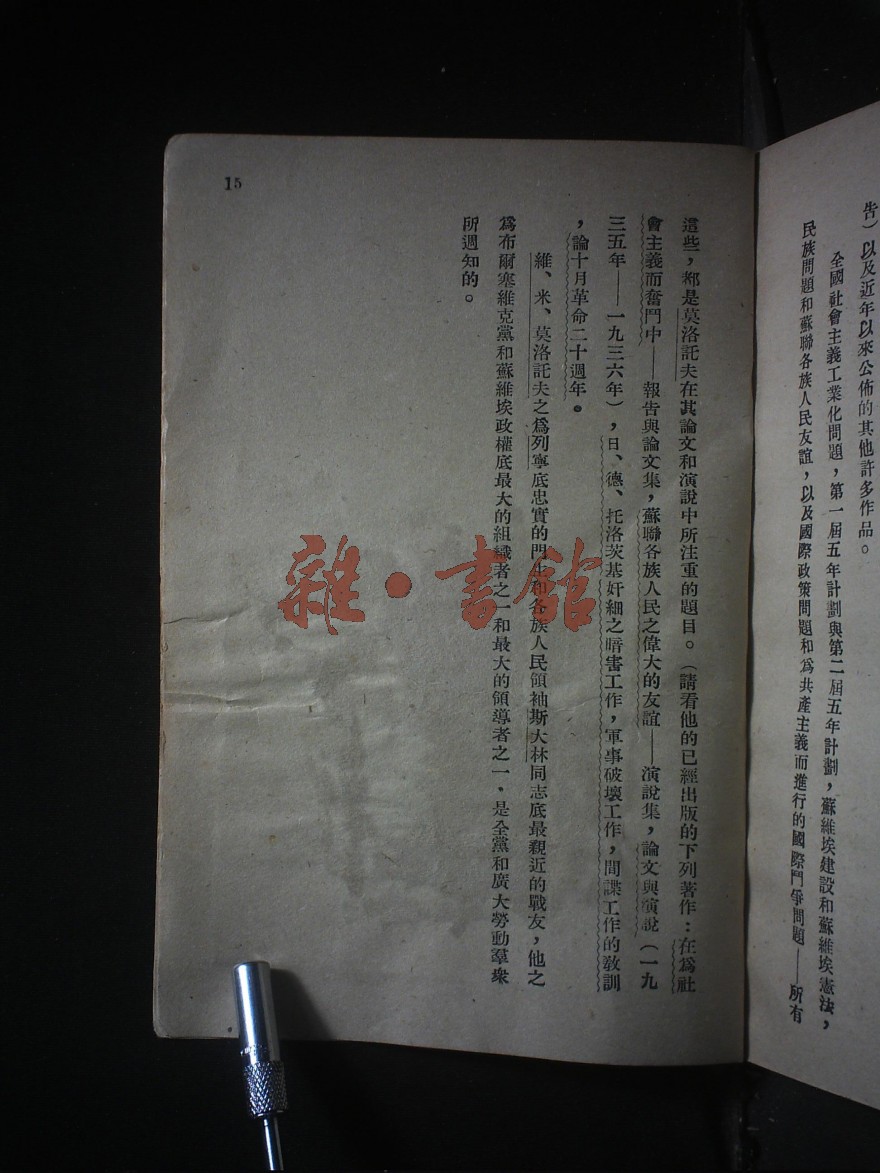 告）以及近年以來公佈的其他許多作品。
全國社會主義工業化問題，第一屆五年計劃與第二屆五年計劃，蘇維埃建設和蘇維埃憲法，
民族問題和蘇聯各族人民友誼，以及國際政策問題和為共產主義而進行的國際鬥爭問題——所有
這些，都是莫洛託夫在其論文和演說中所注重的題目。（請看他的已經出版的下列著作：在為社
會主義而奮鬥中——報告與論文集，蘇聯各族人民之偉大的友誼——演說集，論文與演說（一九
三五年——一九三六年），日、德、托洛茨基奸細之暗害工作，軍事破壞工作，間諜工作的教訓
，論十月革命二十週年。
維、米、莫洛託夫之為列寧底忠實的門生和各族人民領袖斯大林同志底最親近的戰友，他之
為布爾塞維克黨和蘇維埃政權底最大的組織者之一和最大的領導者之一，是全黨和廣大勞動羣衆
所週知的。
15
雜·書館